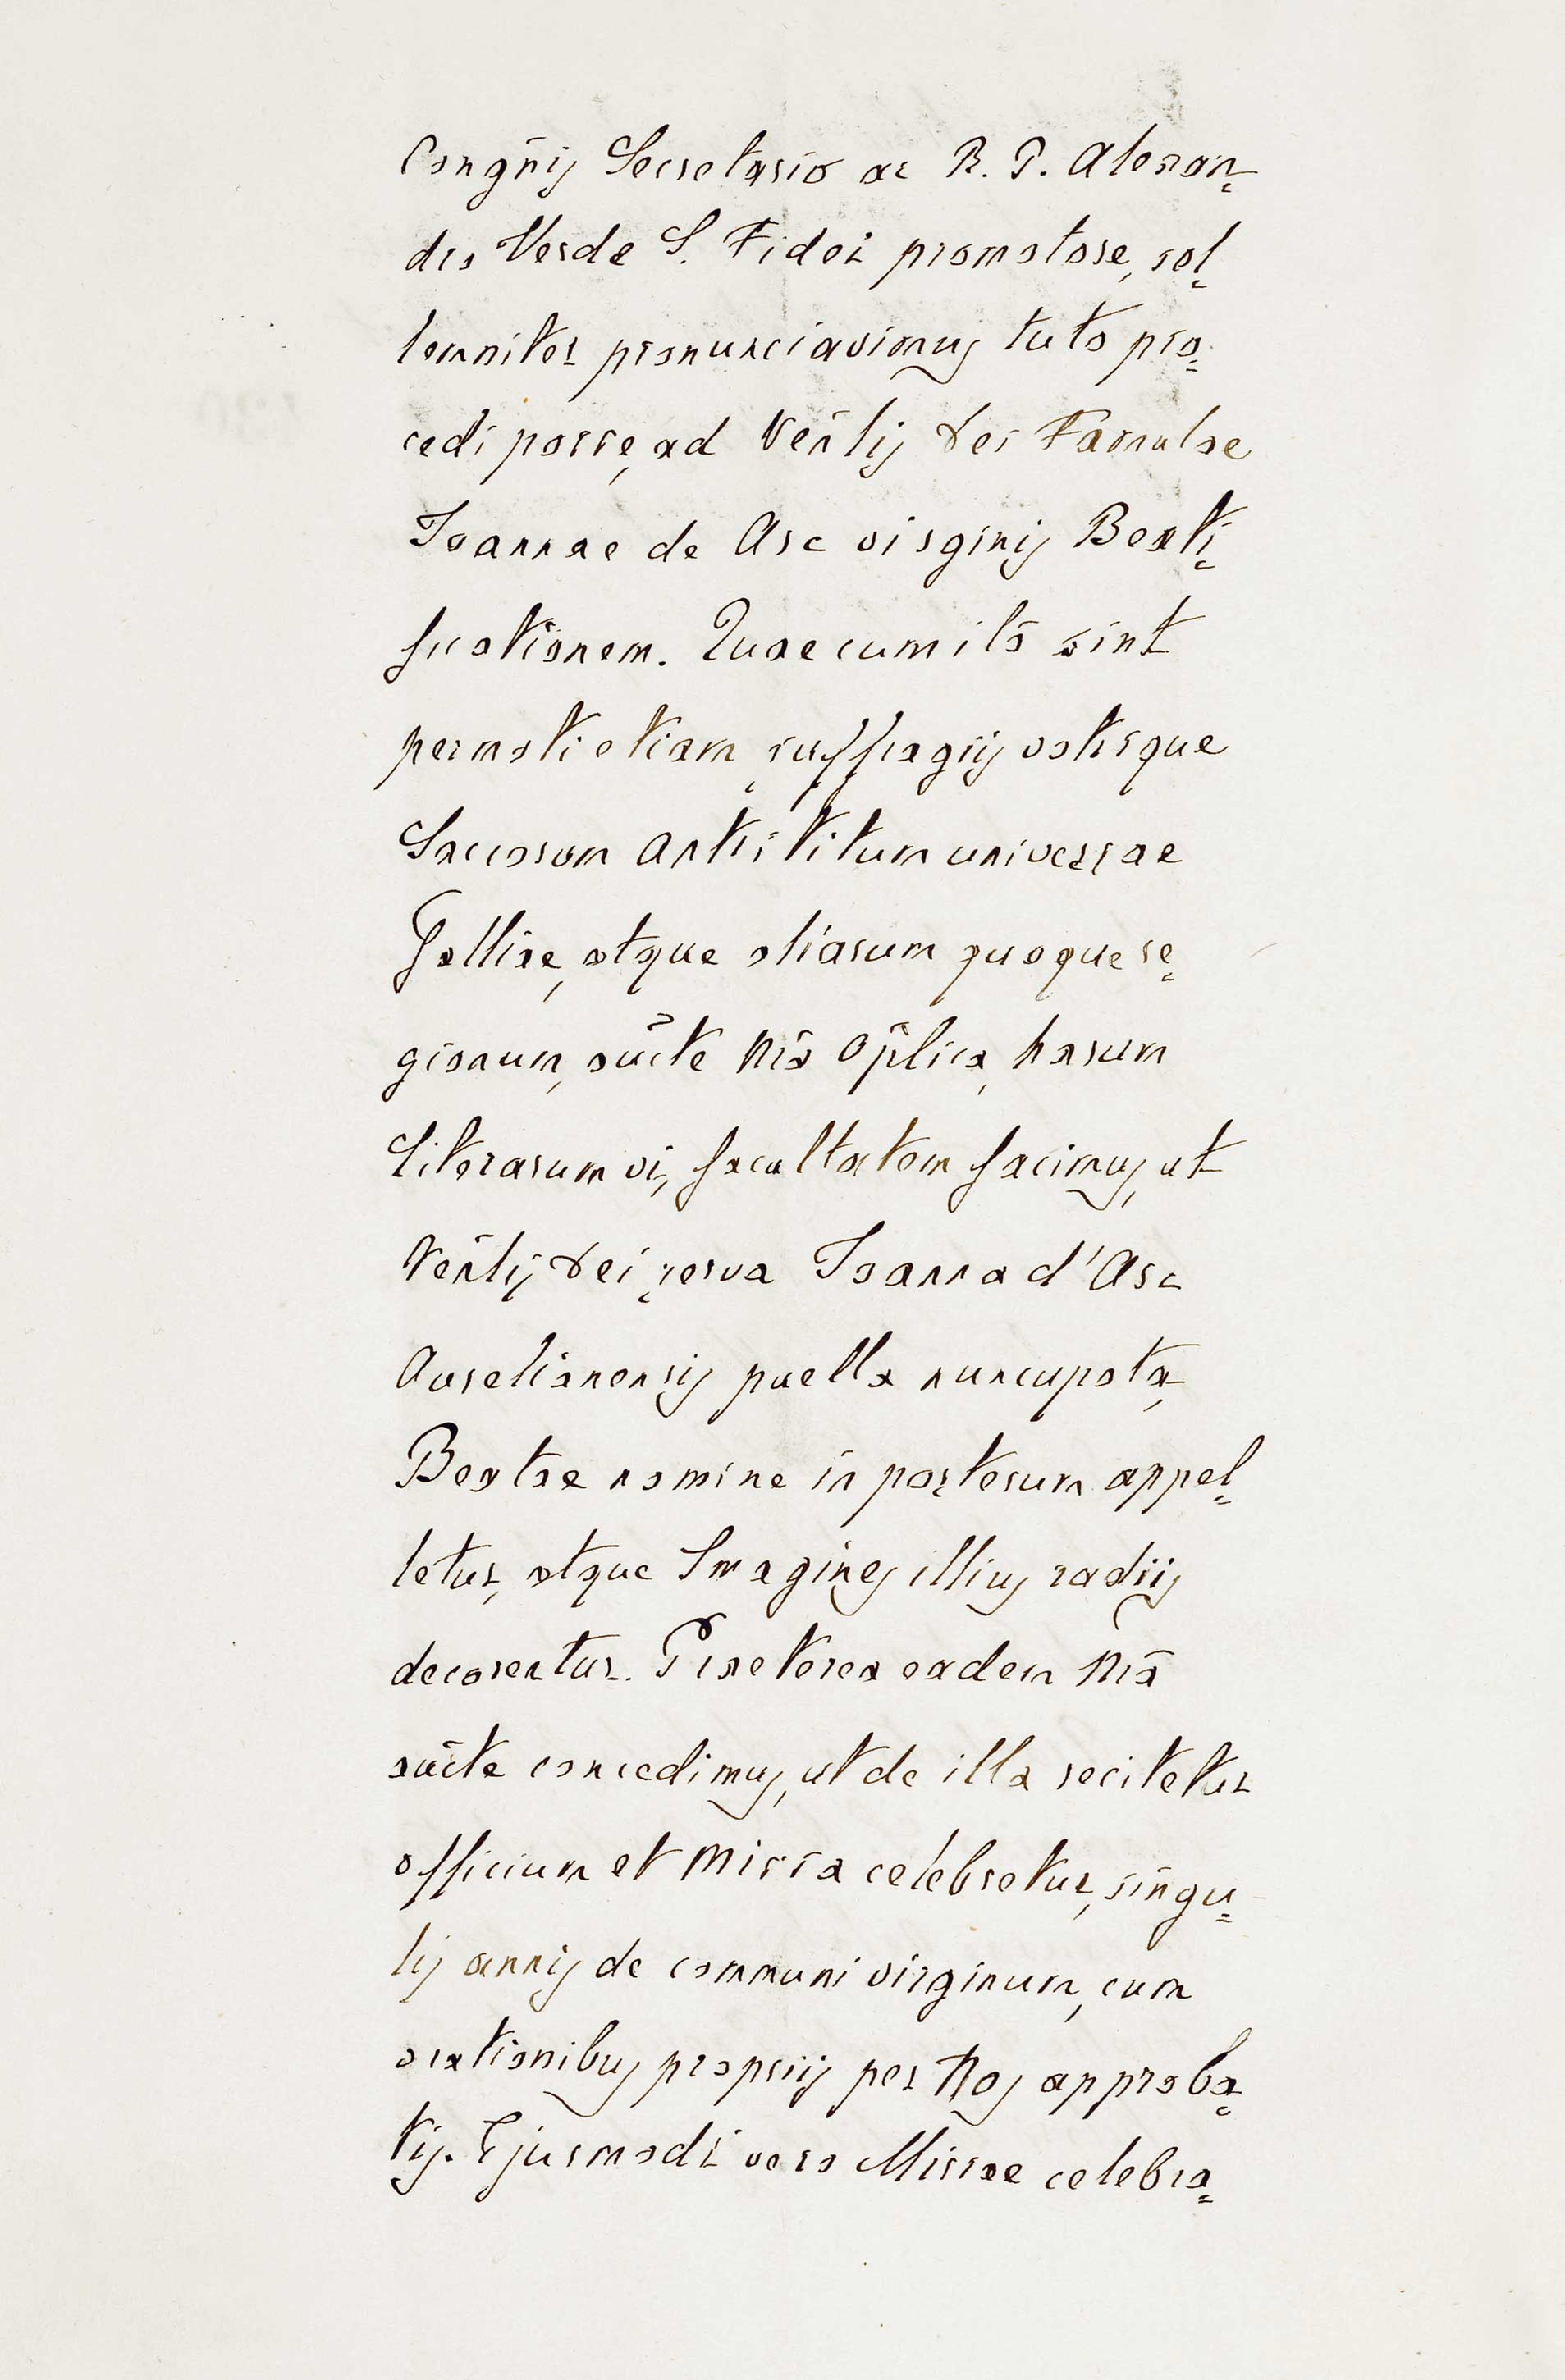 Congñis Secretario ac R. P. Alexan=
dro Verde S. Fidei promotore, sol=
lemniter pronunciavimus tuto pro=
cedi posse, ad Veñlis Dei Famulae
Joannae de Arc virginis Beati=
ficationem. Quae cum ita sint
permoti etiam suffragiis votisque
Sacrorum Antistitum universae
Galliae, atque aliarum quoque re=
gionum, aũcte Nr̃a Ap̃lica, harum
Literarum vi, facultatem facimus, ut
Veñlis Dei serva Joanna d'Arc
Aurelianensis puella nuncupata,
Beatae nomine in posterum appel=
letur, atque Imagines illius radiis
decorentur. Praeterea eadem Nr̃a
aũcte concedimus, ut de illa recitetur
officium et Missa celebretur, singu=
lis annis de communi virginum, cum
orationibus propriis per Nos approba=
tis. Ejusmodi vero Missae celebra=